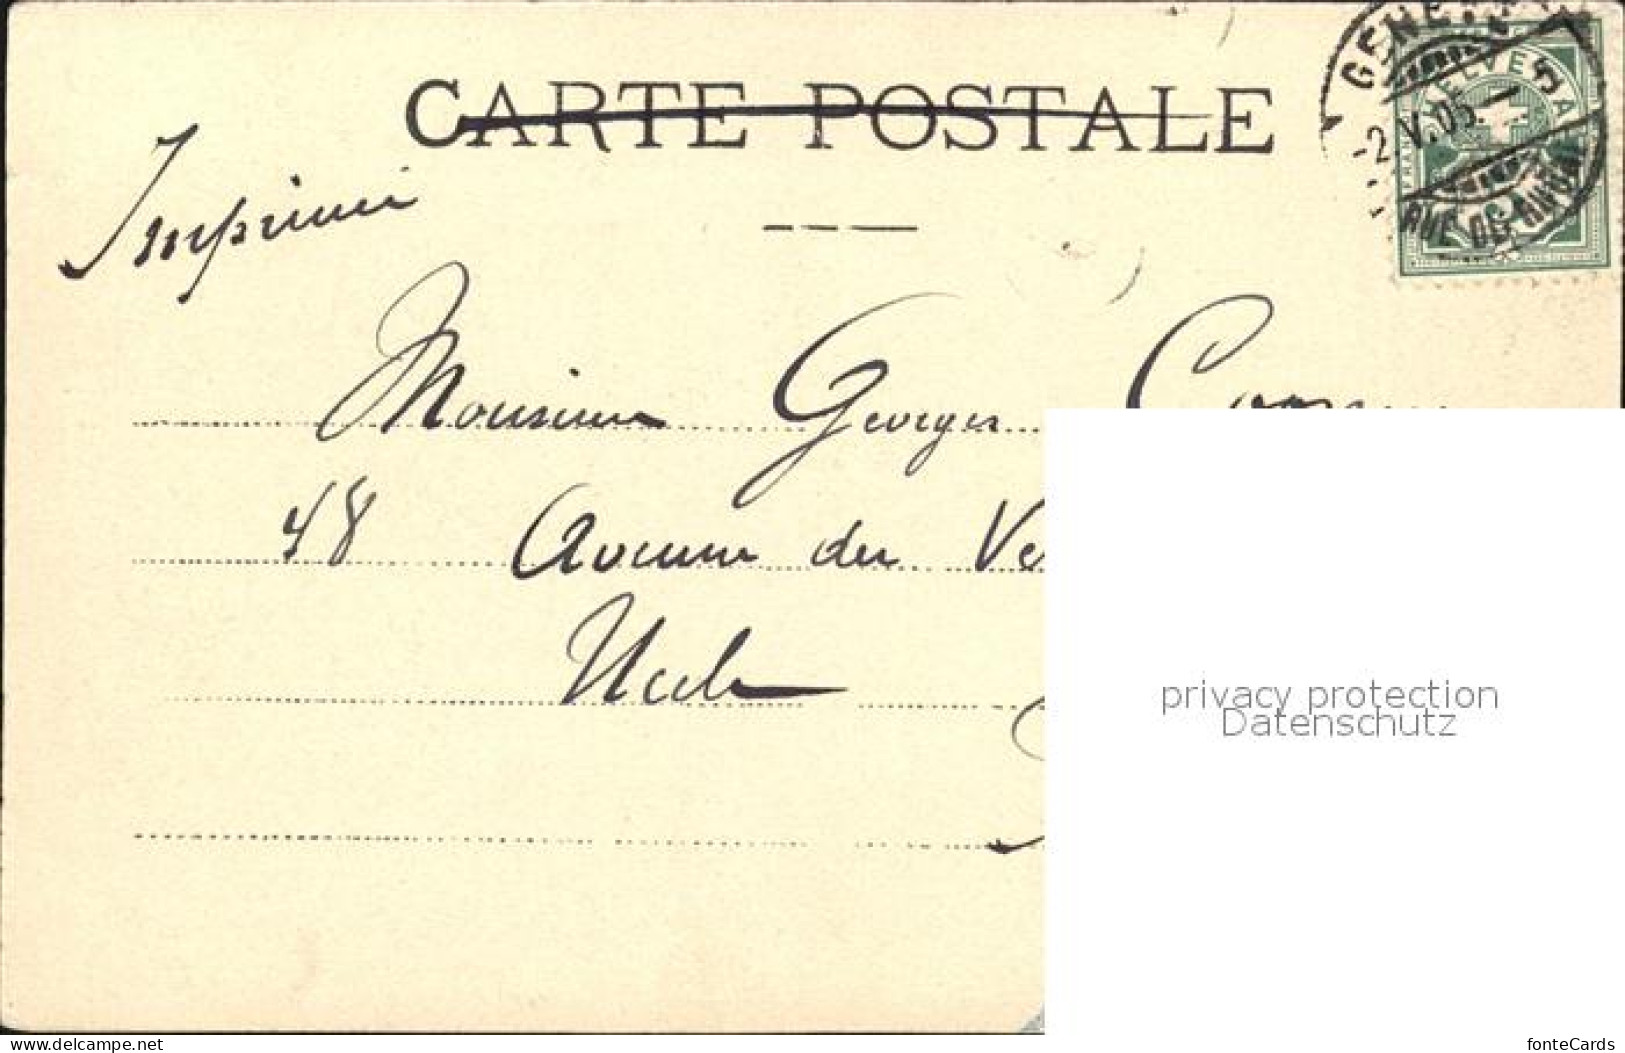 CARTE POSTALE
Imprimé
GENÈVE
-2.V.05.-5
RUE DU
HELVETIA
FRANCO
Monsieur Georges
48 Avenue du
Uccle
privacy protection
Datenschutz
delcampe.net
fonteCards